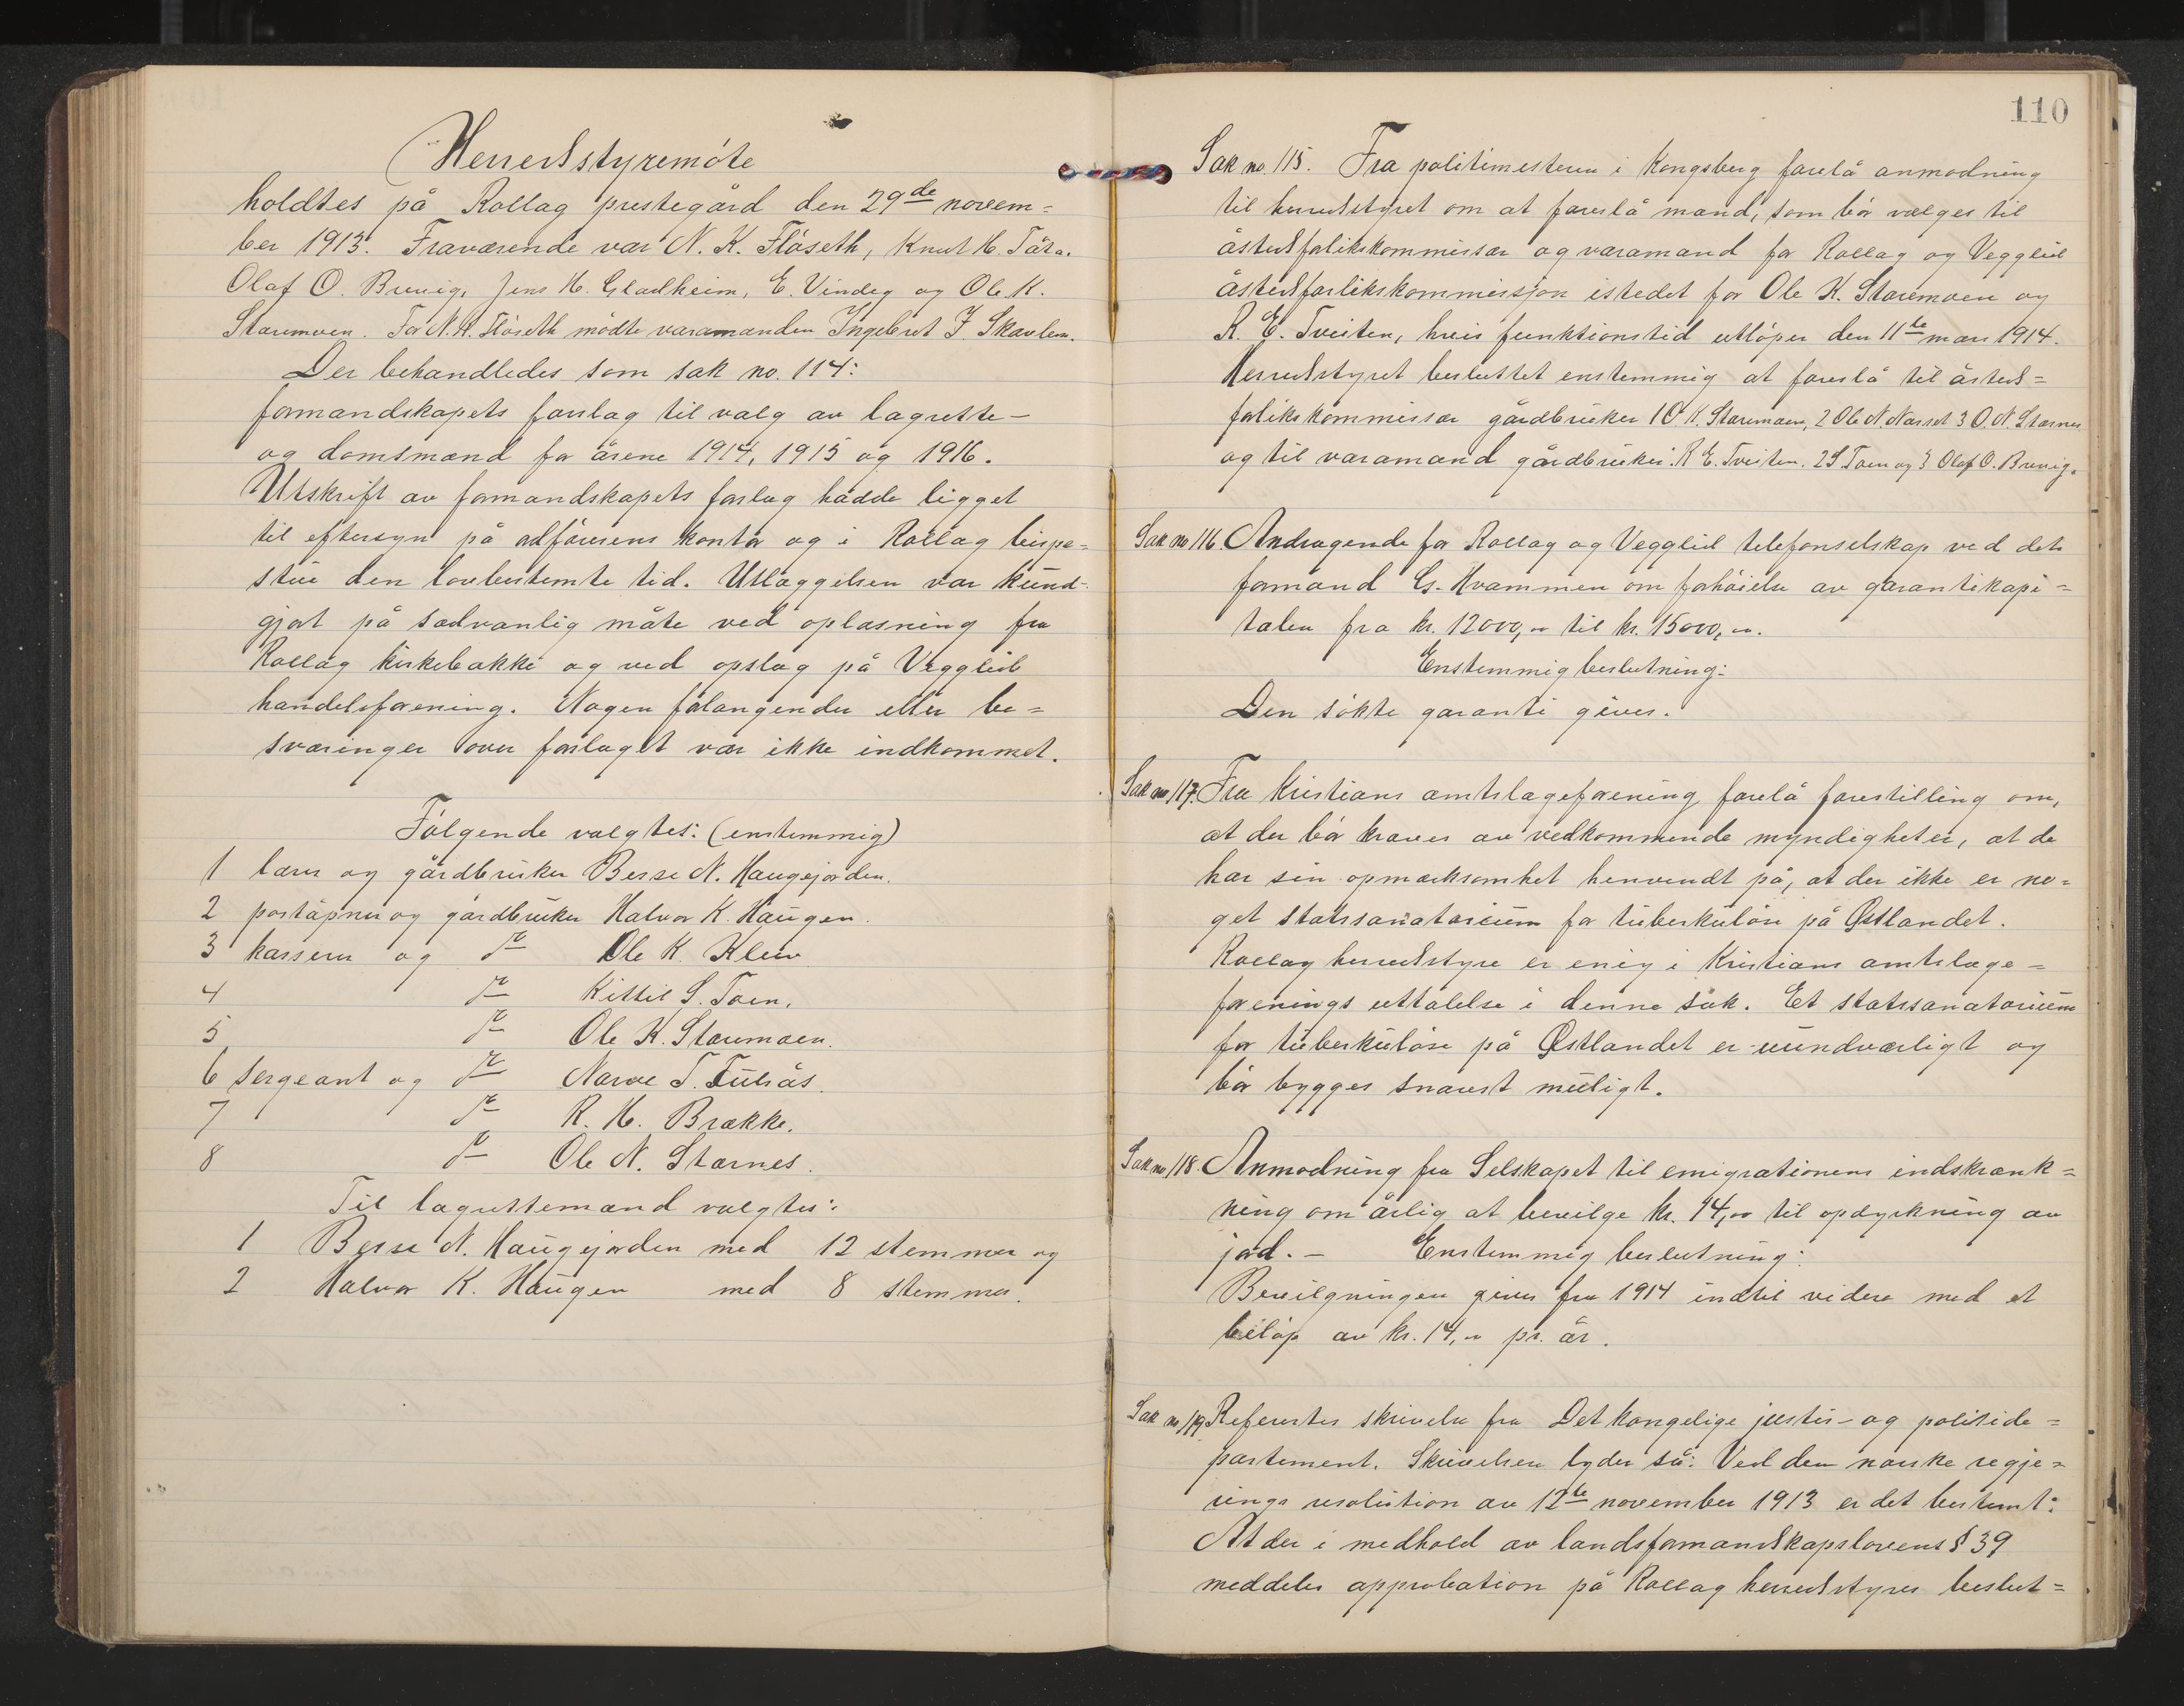 Herredsstyremöte
holdtes på Rollag prestegård den 29de novem=
ber 1913. Fraværende var N. K. Flöseth, Knut H. Tära.
Olaf O. Bruvig, Jens H. Gladheim, E. Vindeg og Ole K.
Staremoen. For N. K. Flöseth mödte varamanden Ingebret J. Skavlen.
Der behandledes som sak no. 114:
formandskapets forslag til valg av lagrette-
og domsmænd for årene 1914, 1915 og 1916.
Utskrift av formandskapets forslag hadde ligget
til eftersyn på ordförerens kontor og i Rollag bispe=
stue den lovbestemte tid. Utlæggelsen var kund-
gjort på sædvanlig måte ved oplæsning fra
Rollag kirkebakke og ved opslag på Vegglid
handelsforening. Nogen forlangender eller be=
sværinger over forslaget var ikke indkommet.
Fölgende valgtes: (enstemmig)
1 lærer og gårdbruker Besse N. Haugejorden.
2 poståpner og gårdbruker Halvor K. Haugen.
3 kasserer og do Ole K. Kleiv
4 do Kittil S. Toen.
5 do Ole K. Staremoen.
6 sergeant og do Narve T. Fulsås.
7 do R. H. Brække.
8 do Ole N. Stærnes.
Til lagrettemænd valgtes:
1 Besse N. Haugejorden med 12 stemmer og
2 Halvor K. Haugen med 8 stemmer.
110
Sak no. 115. Fra politimesteren i Kongsberg forelå anmodning
til herredsstyret om at foreslå mænd, som bör vælges til
åstedsforlikskommissær og varamand for Rollag og Vegglid
åstedsforlikskommission istedet for Ole K. Staremoen og
R. E. Tveiten, hvis funktionstid utlöper den 11te mars 1914.
Herredsstyret besluttet enstemmig at foreslå til åsteds=
forlikskommissær gårdbruker 1 O. K. Staremoen, 2 Ole N. Næsset 3 O. N. Stærnes
og til varamand gårdbruker: R E. Tveiten. 2 S. Toen og 3 Olaf O. Bruvig.
Sak no 116. Andragende for Rollag og Vegglid telefonselskap ved dets
formand G. Hvammen om forhöielse av garantikapi=
talen fra kr. 12000,00 til kr. 15000,00.
Enstemmig beslutning:
Den sökte garanti gives.
Sak no 117. Fra Kristians amtslægeforening forelå forestilling om,
at der bör kræves av vedkommende myndigheter, at de
har sin opmerksomhet henvendt på, at der ikke er no=
get statssanatorium for tuberkulöse på Østlandet.
Rollag herredsstyre er enig i Kristians amtslæge=
forenings uttalelse i denne sak. Et statssanatorium
for tuberkulöse på Østlandet er uundværligt og
bör bygges snarest muligt.
Sak no 118. Anmodning fra Selskapet til emigrationens indskrænk=
ning om årlig at bevilge kr. 14,00 til opdyrkning av
jord. – Enstemmig beslutning:
Bevilgningen gives fra 1914 indtil videre med et
belöp av kr. 14,00 pr. år.
Sak no 119 Refertes skrivelse fra Det kongelige justis- og politide=
partement. Skrivelsen lyder så: Ved den norske regje=
rings resolution av 12te november 1913 er det bestemt:
At der i medhold av landsformandskapslovens § 39
meddeles approbation på Rollag herredsstyres beslut=